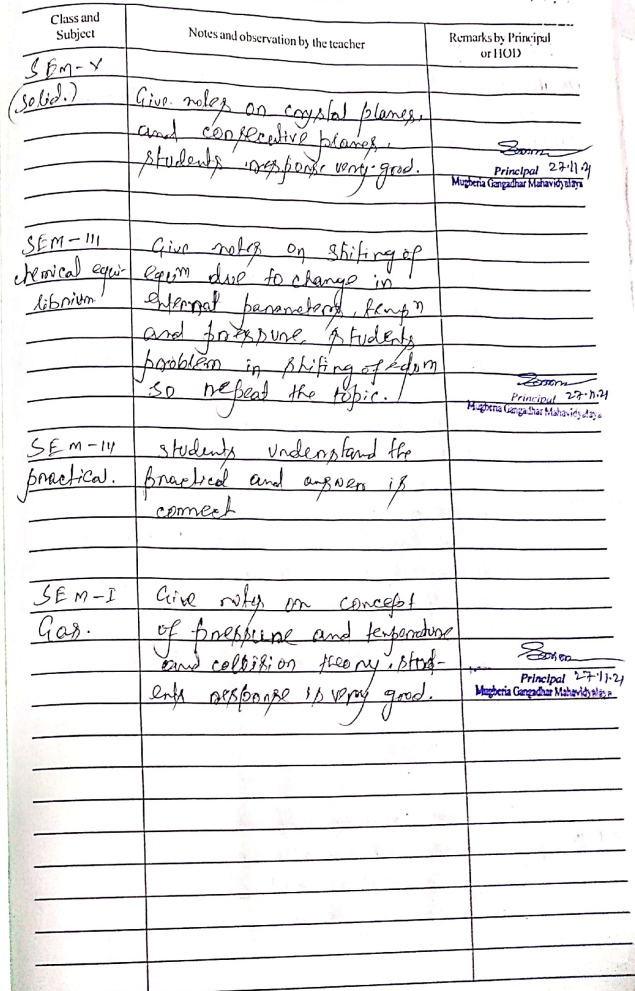 Class and
Subject
Notes and observation by the teacher
Remarks by Principal
or HOD
SEM-V
(Solid.)
Give notes on crystal planes,
and consecutive planes,
students response very good.
Principal 27.11.21
Mugberia Gangadhar Mahavidyalaya
SEM-III
chemical equi-
librium
Give notes on shifting of
eqm due to change in
external parameters, tempn
and pressure, students
problem in shifing of eqm
so repeat the topic.
Principal 27.11.21
Mugberia Gangadhar Mahavidyalaya
SEM-III
practical.
students understand the
practical and answer is
correct
SEM-I
Gas.
Give notes on concept
of pressure and temperature
and collision theory. stud-
ents response is very good.
Principal 27.11.21
Mugberia Gangadhar Mahavidyalaya